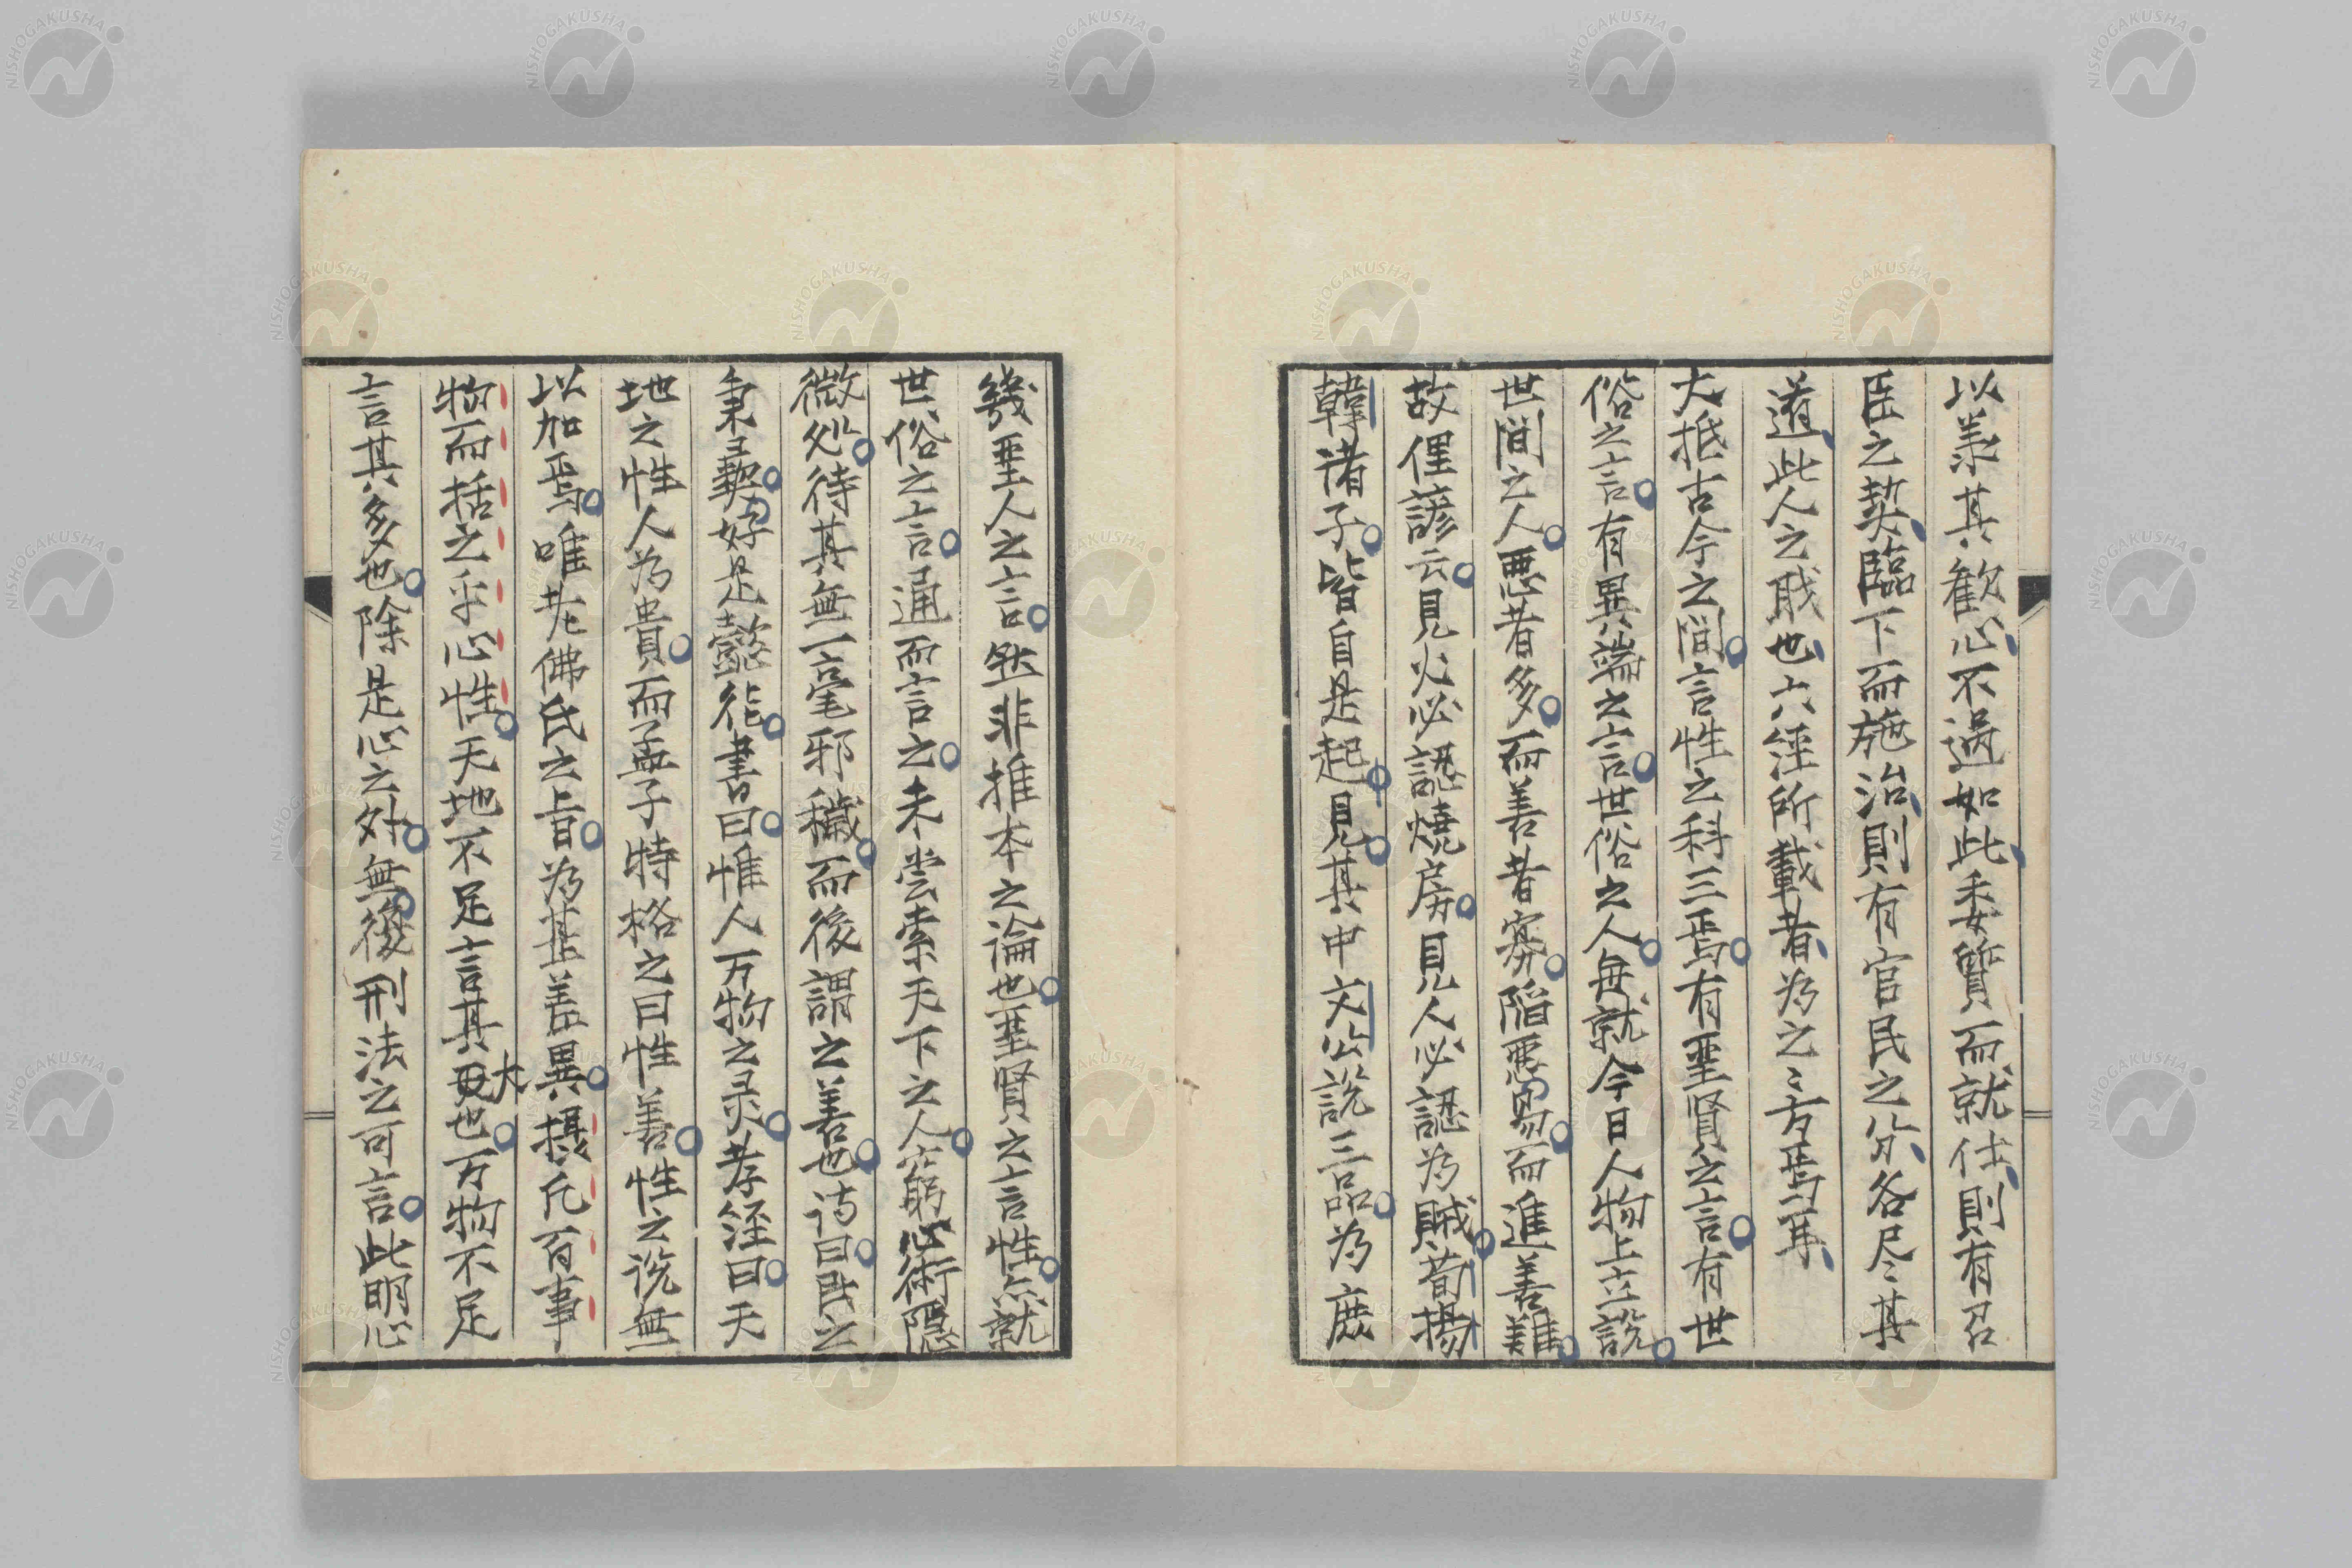 以業其歓心不過如此委質而就仕則有君
臣之契臨下而施治則有官民之分各尽其
道此人之職也六経所載者為之〻方焉耳
大抵古今之間言性之科三焉有聖賢之言有世
俗之言有異端之言世俗之人毎就今日人物上立説
世間之人悪者多而善者寡陥悪易而進善難
故俚諺云見火必認焼房見人必認為賊荀揚
韓諸子皆自是起見其中文公説三品為庶
幾聖人之言然非推本之論也聖賢之言性亦就
世俗之言通而言之未嘗索天下之人窮心術隠
微処待其無一毫邪穢而後謂之善也詩曰民之
秉彝好是懿徳書曰惟人万物之霊孝経曰天
地之性人為貴而孟子特格之曰性善性之説無
以加焉唯老佛氏之旨為甚異摂凡百事
物而括之乎心性天地不足言其大也万物不足
言其多也除是心之外無後刑法之可言此明心